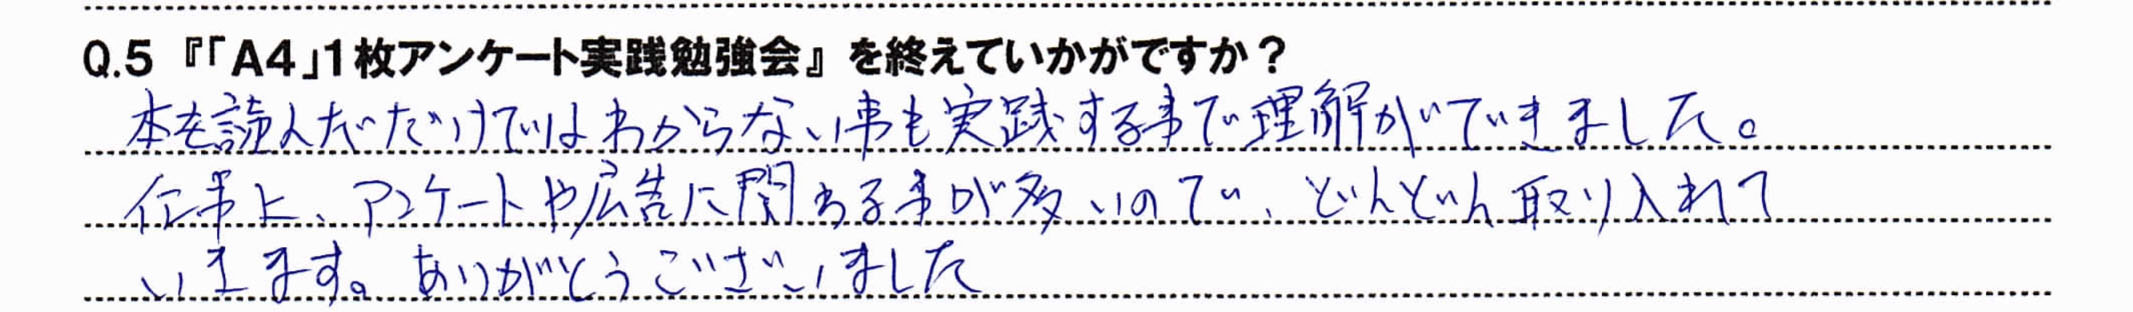 Q.5『「A4」1枚アンケート実践勉強会』を終えていかがですか？
本を読んだだけではわからない事も実践する事で理解ができました。
仕事上、アンケートや広告に関わる事が多いので、どんどん取り入れて
いきます。ありがとうございました